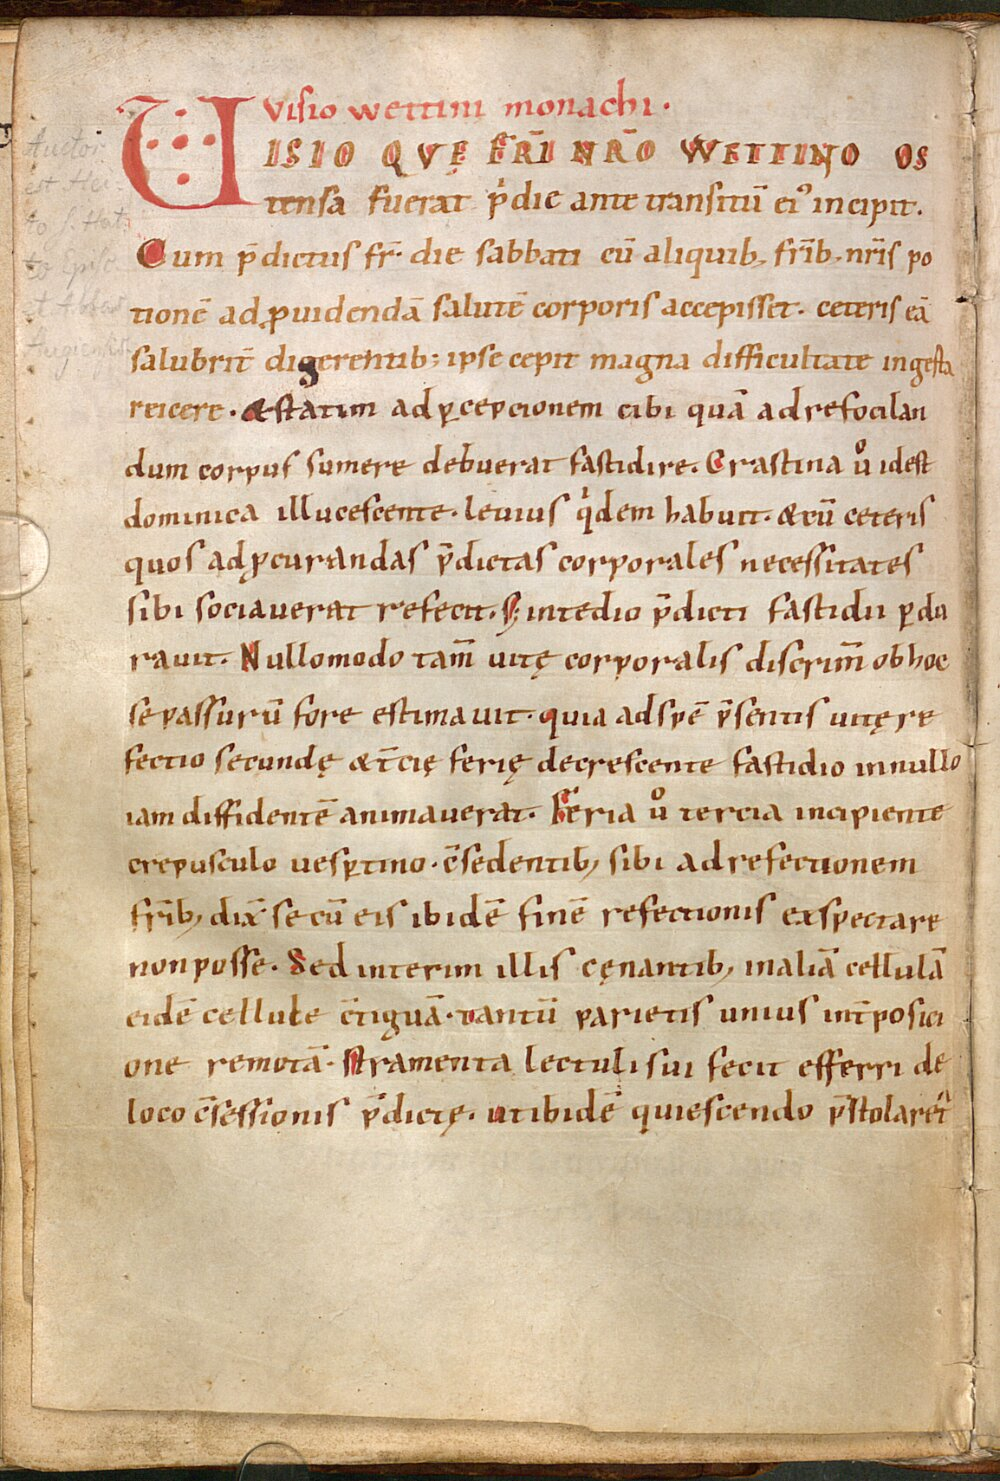 Visio wettini monachi.
UISIO QVĘ FR̄I NR̄O WETTINO OS
tensa fuerat p̍die ante transitū ei⁹ incipit.
Cum p̄dictus fr̄. die sabbati cū aliquib; fr̄ib; nr̄is po
tionē ad ꝓuidendā salutē corporis accepisset. ceteris eā
salubrit̄ digerentib; ipse cepit magna difficultate ingesta
reicere. & statim ad ꝑcepcionem cibi quā ad refocilan
dum corpus sumere debuerat fastidire. Crastina u̾ idest
dominica illucescente. leuius q̍dem habuit. & cū ceteris
quos ad ꝓcurandas p̄dictas corporales necessitates
sibi sociauerat refecit. S; intedio p̄dicti fastidii ꝑdu
rauit. Nullomodo tam̄ uitę corporalis discrim̄ ob hoc
se passurū fore estimauit. quia ad spē p̄sentis uitę re
fectio secundę & t̄cię ferię decrescente fastidio in nullo
iam diffidentē animauerat. Feria u̾ tercia incipiente
crepusculo uesꝑtino. c̄sedentib; sibi ad refectionem
fr̄ib; dix̄ se cū eis ibidē finē refectionis exspectare
non posse. Sed interim illis cęnantib; in aliā cellulā
eidē cellule c̄tiguā. tantū parietis unius int̄posici
one remotā. stramenta lectuli sui fecit efferri de
loco c̄sessionis p̄dictę. ut ibidē quiescendo p̄stolaret̾
Auctor
est Hei-
to s. Hat-
to Episc.
et Abbas
Augiensis